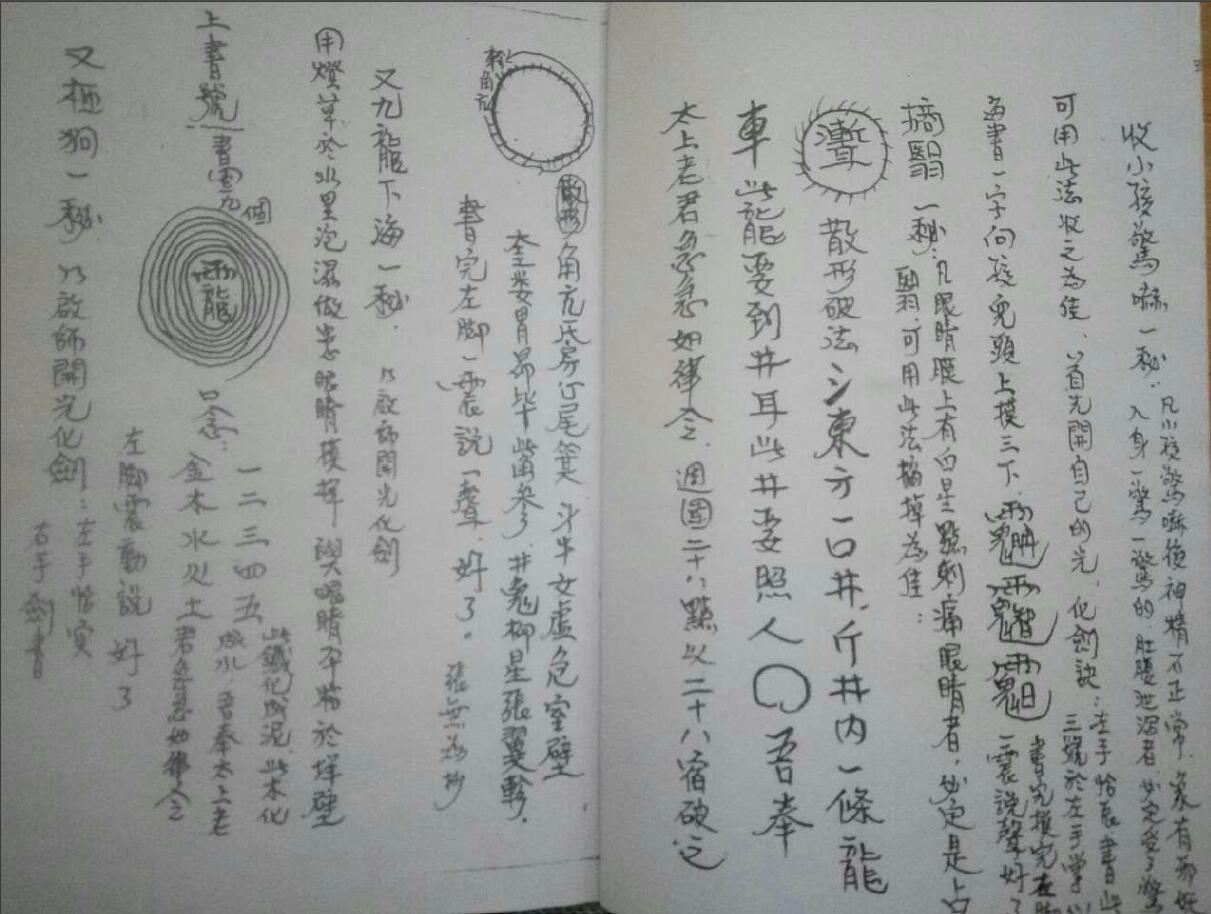 收小孩驚嚇一秘:
凡小孩驚嚇後神精不正常,象有邪妖
入身一驚一驚的肚腹泄瀉者必定受了驚
可用此法收之為佳、首先開自己的光,化劍訣:
左手恰辰書此
三號於左手掌
每書一字向孩兒頭上摸三下
書完摸完左脚
一震說聲好了
摘翳一秘:
凡眼睛膜上有白星點刺痛眼睛者,必定是占
翳,可用此法摘掉為佳:
散形破法 東方一口井,斤井内一條龍
車此龍要到井耳此井要照人 吾奉
太上老君急急如律令,週圍二十八點以二十八宿破之
軫角亢
散形
角亢氐房心尾箕 斗牛女虛危室壁
奎婁胃昴毕觜參,井鬼柳星張翼軫,
書完左脚一震說一聲,好了。
張無為抄
又九龍下海一秘,以啟師開光化劍
用燈草於水里泡濕做患眼睛摸擇與眼睛不粘於墙壁
上書號
書圈九個
雨龍
口念:
一二三四五
金木水火土
此鐵化成泥,此木化
成水,吾奉太上老
君急急如律令
左脚震動說 好了
又極狗一秘,以啟師開光化劍:
左手恰寅
右手劍書